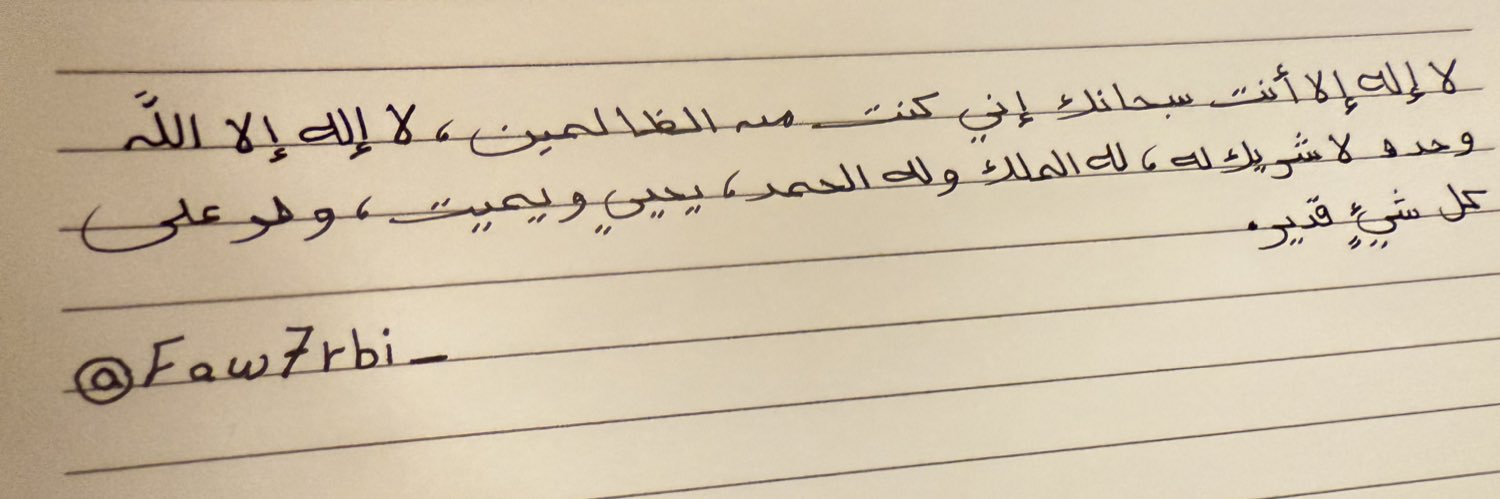 لا إله إلا أنت سبحانك إني كنت من الظالمين، لا إله إلا اللَّه
وحده لا شريك له، له الملك وله الحمد، يحيي ويميت، وهو على
كل شيءٍ قدير.
@Faw7rbi_